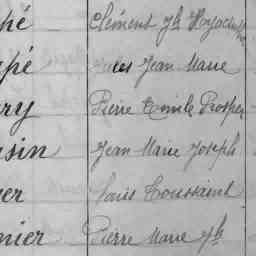 pé Clément Jh Hyacinthe
pé Jules Jean Marie
ry Pierre Emile Prosper
sin Jean Marie Joseph
er Louis Toussaint
nier Pierre Marie Jh